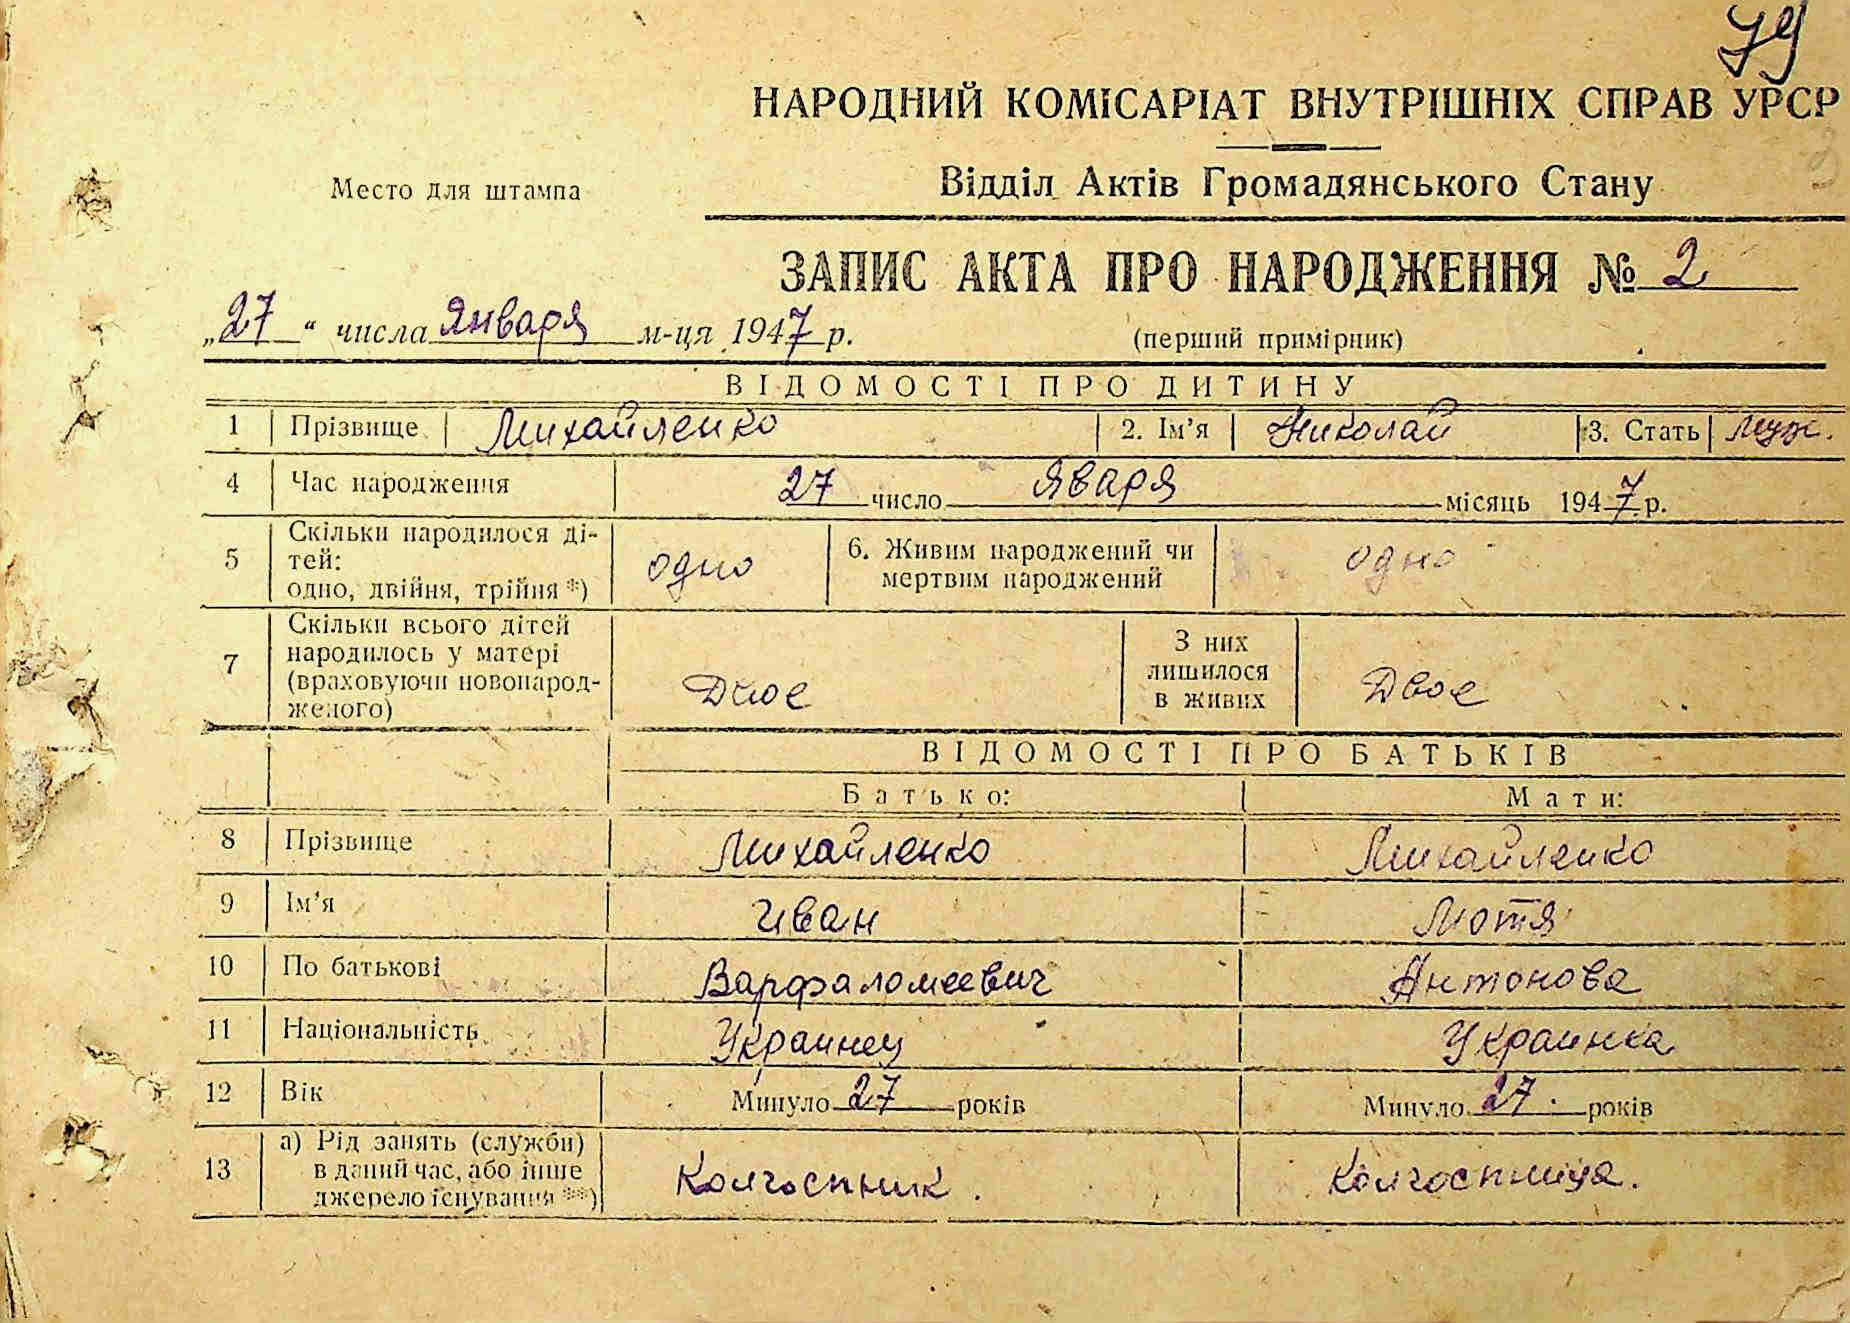 79
НАРОДНИЙ КОМІСАРІАТ ВНУТРІШНІХ СПРАВ УРСР
Место для штампа
Відділ Актів Громадянського Стану
ЗАПИС АКТА ПРО НАРОДЖЕННЯ № 2
„27“ числа Января м-ця 1947 р.
(перший примірник)
ВІДОМОСТІ ПРО ДИТИНУ
1 Прізвище Михайленко 2. Ім’я Николай 3. Стать муж.
4 Час народження 27 число Яваря місяць 1947 р.
5 Скільки народилося ді-
тей:
одно, двійня, трійня *) одно
6. Живим народжений чи
мертвим народжений одно
7 Скільки всього дітей
народилось у матері
(враховуючи новонарод-
женого) Двое
З них
лишилося
в живих Двое
ВІДОМОСТІ ПРО БАТЬКІВ
Батько: Мати:
8 Прізвище Михайленко Михайленко
9 Ім’я Иван Мотя
10 По батькові Варфаломеевич Антонова
11 Національність Украинец Украинка
12 Вік Минуло 27 років Минуло 27. років
13 а) Рід занять (служби)
в даний час, або інше
джерело існування **) Колгоспник. Колгоспница.